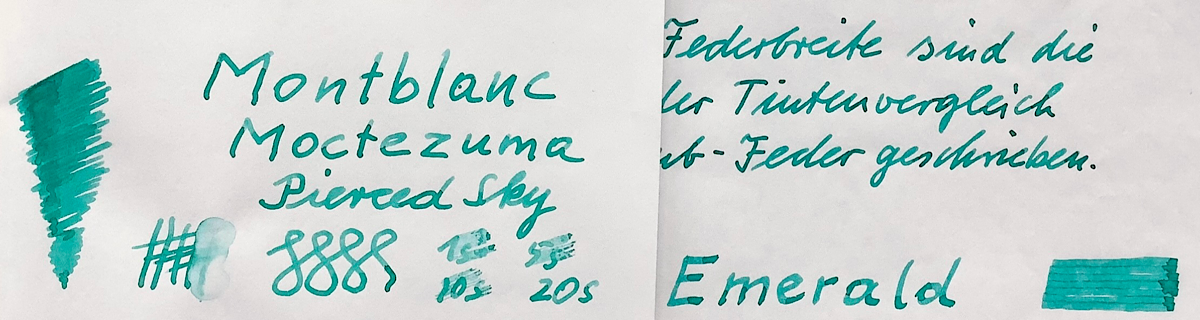 Montblanc
Moctezuma
Pierced Sky
1s 5s
10s 20s
Federbreite sind die
der Tintenvergleich
-Feder geschrieben.
Emerald